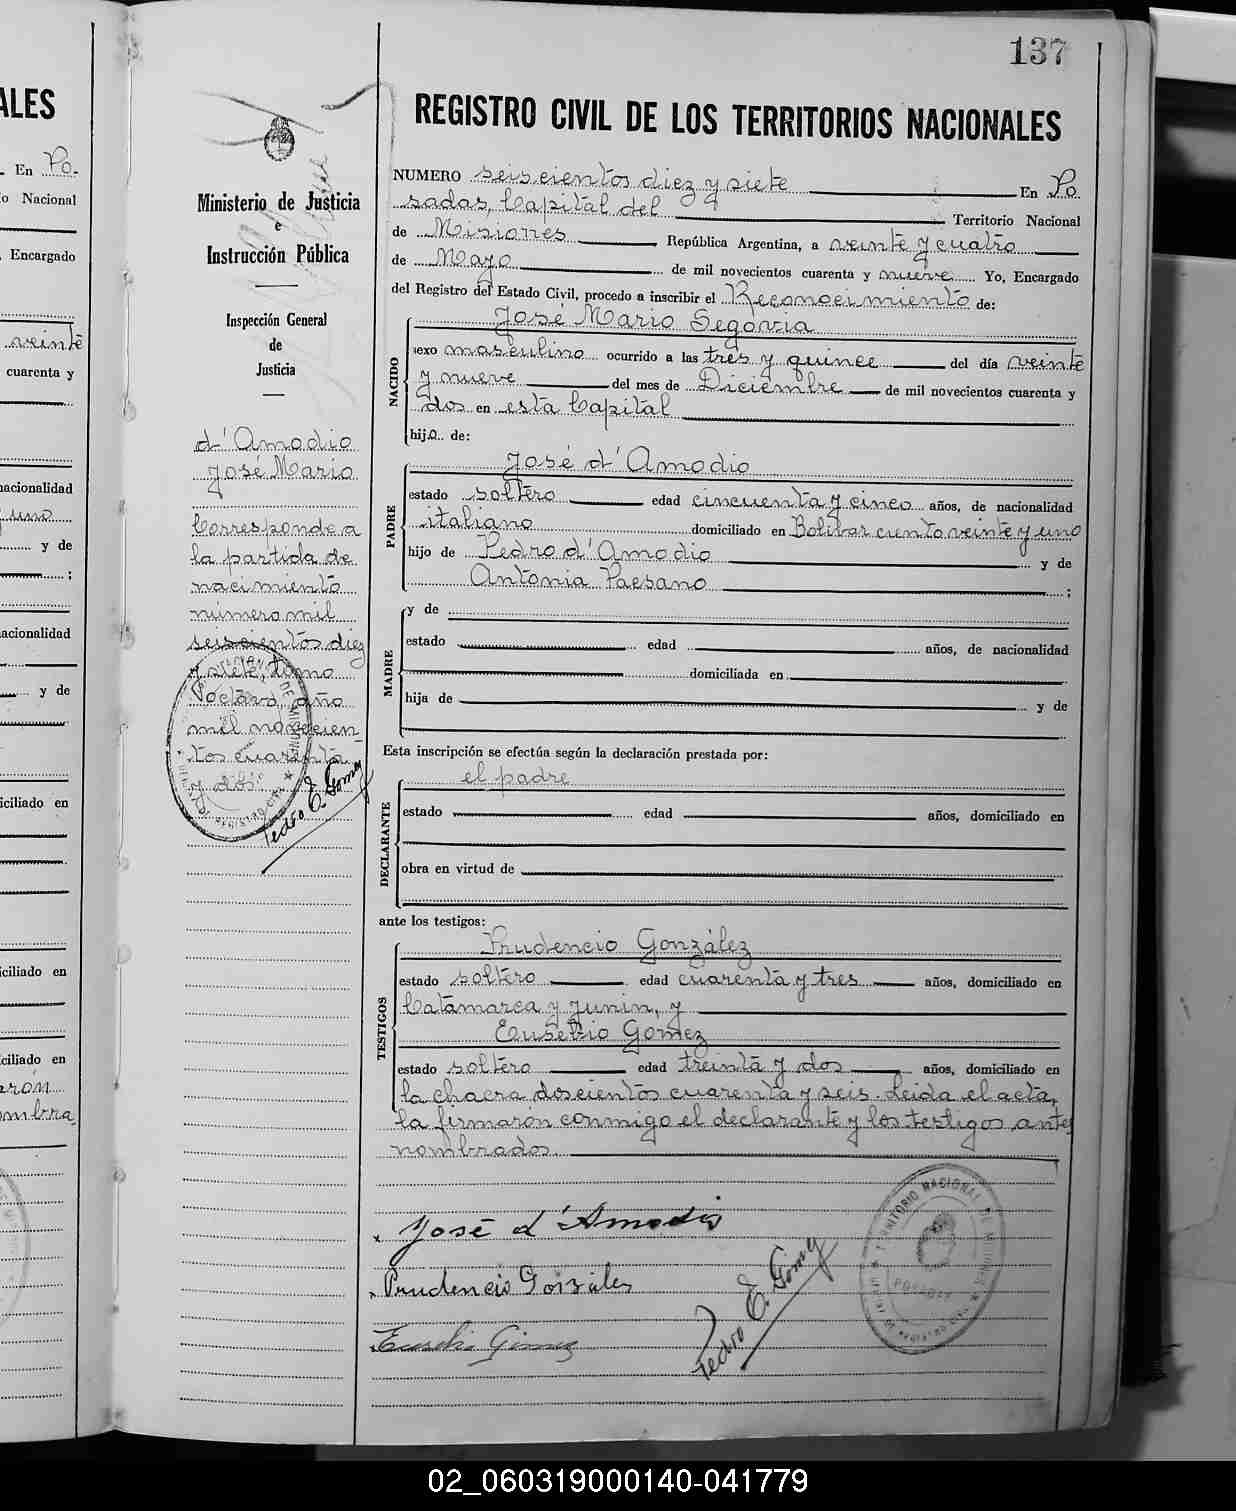 ALES
En Po-
o Nacional
Encargado
veinte
cuarenta y
nacionalidad
y uno
y de
acionalidad
y de
iciliado en
iciliado en
ciliado en
aron
ombra
137
REGISTRO CIVIL DE LOS TERRITORIOS NACIONALES
Ministerio de Justicia
e
Instrucción Pública
Inspección General
de
Justicia
d'Amodio
José Mario
Corresponde a
la partida de
nacimiento
número mil
seiscientos diez
y siete, tomo
octavo, año
mil novecien_
tos cuarenta
y dos.
Pedro E. Gomez
NUMERO seiscientos diez y siete En Po
sadas, Capital del Territorio Nacional
de Misiones República Argentina, a veinte y cuatro
de Mayo de mil novecientos cuarenta y nueve Yo, Encargado
del Registro del Estado Civil, procedo a inscribir el Reconocimiento de:
NACIDO
José Mario Segovia
sexo masculino ocurrido a las tres y quince del día veinte
y nueve del mes de Diciembre de mil novecientos cuarenta y
dos en esta Capital
hijo de:
PADRE
José d'Amodio
estado soltero edad cincuenta y cinco años, de nacionalidad
italiano domiciliado en Bolibar ciento veinte y uno
hijo de Pedro d'Amodio y de
Antonia Paesano ;
MADRE
y de
estado edad años, de nacionalidad
domiciliada en
hija de y de
Esta inscripción se efectúa según la declaración prestada por:
DECLARANTE
el padre
estado edad años, domiciliado en
obra en virtud de
ante los testigos:
TESTIGOS
Prudencio González
estado soltero edad cuarenta y tres años, domiciliado en
Catamarca y Junin, y
Eusebio Gomez
estado soltero edad treinta y dos años, domiciliado en
la chacra doscientos cuarenta y seis. Leida el acta,
la firmaron conmigo el declarante y los testigos antes
nombrados.
José d'Amodio
Prudencio Gonzáles
Gomez
Pedro E. Gomez
TERRITORIO NACIONAL DE MISIONES
POSADAS
REGISTRO CIVIL
02_060319000140-041779